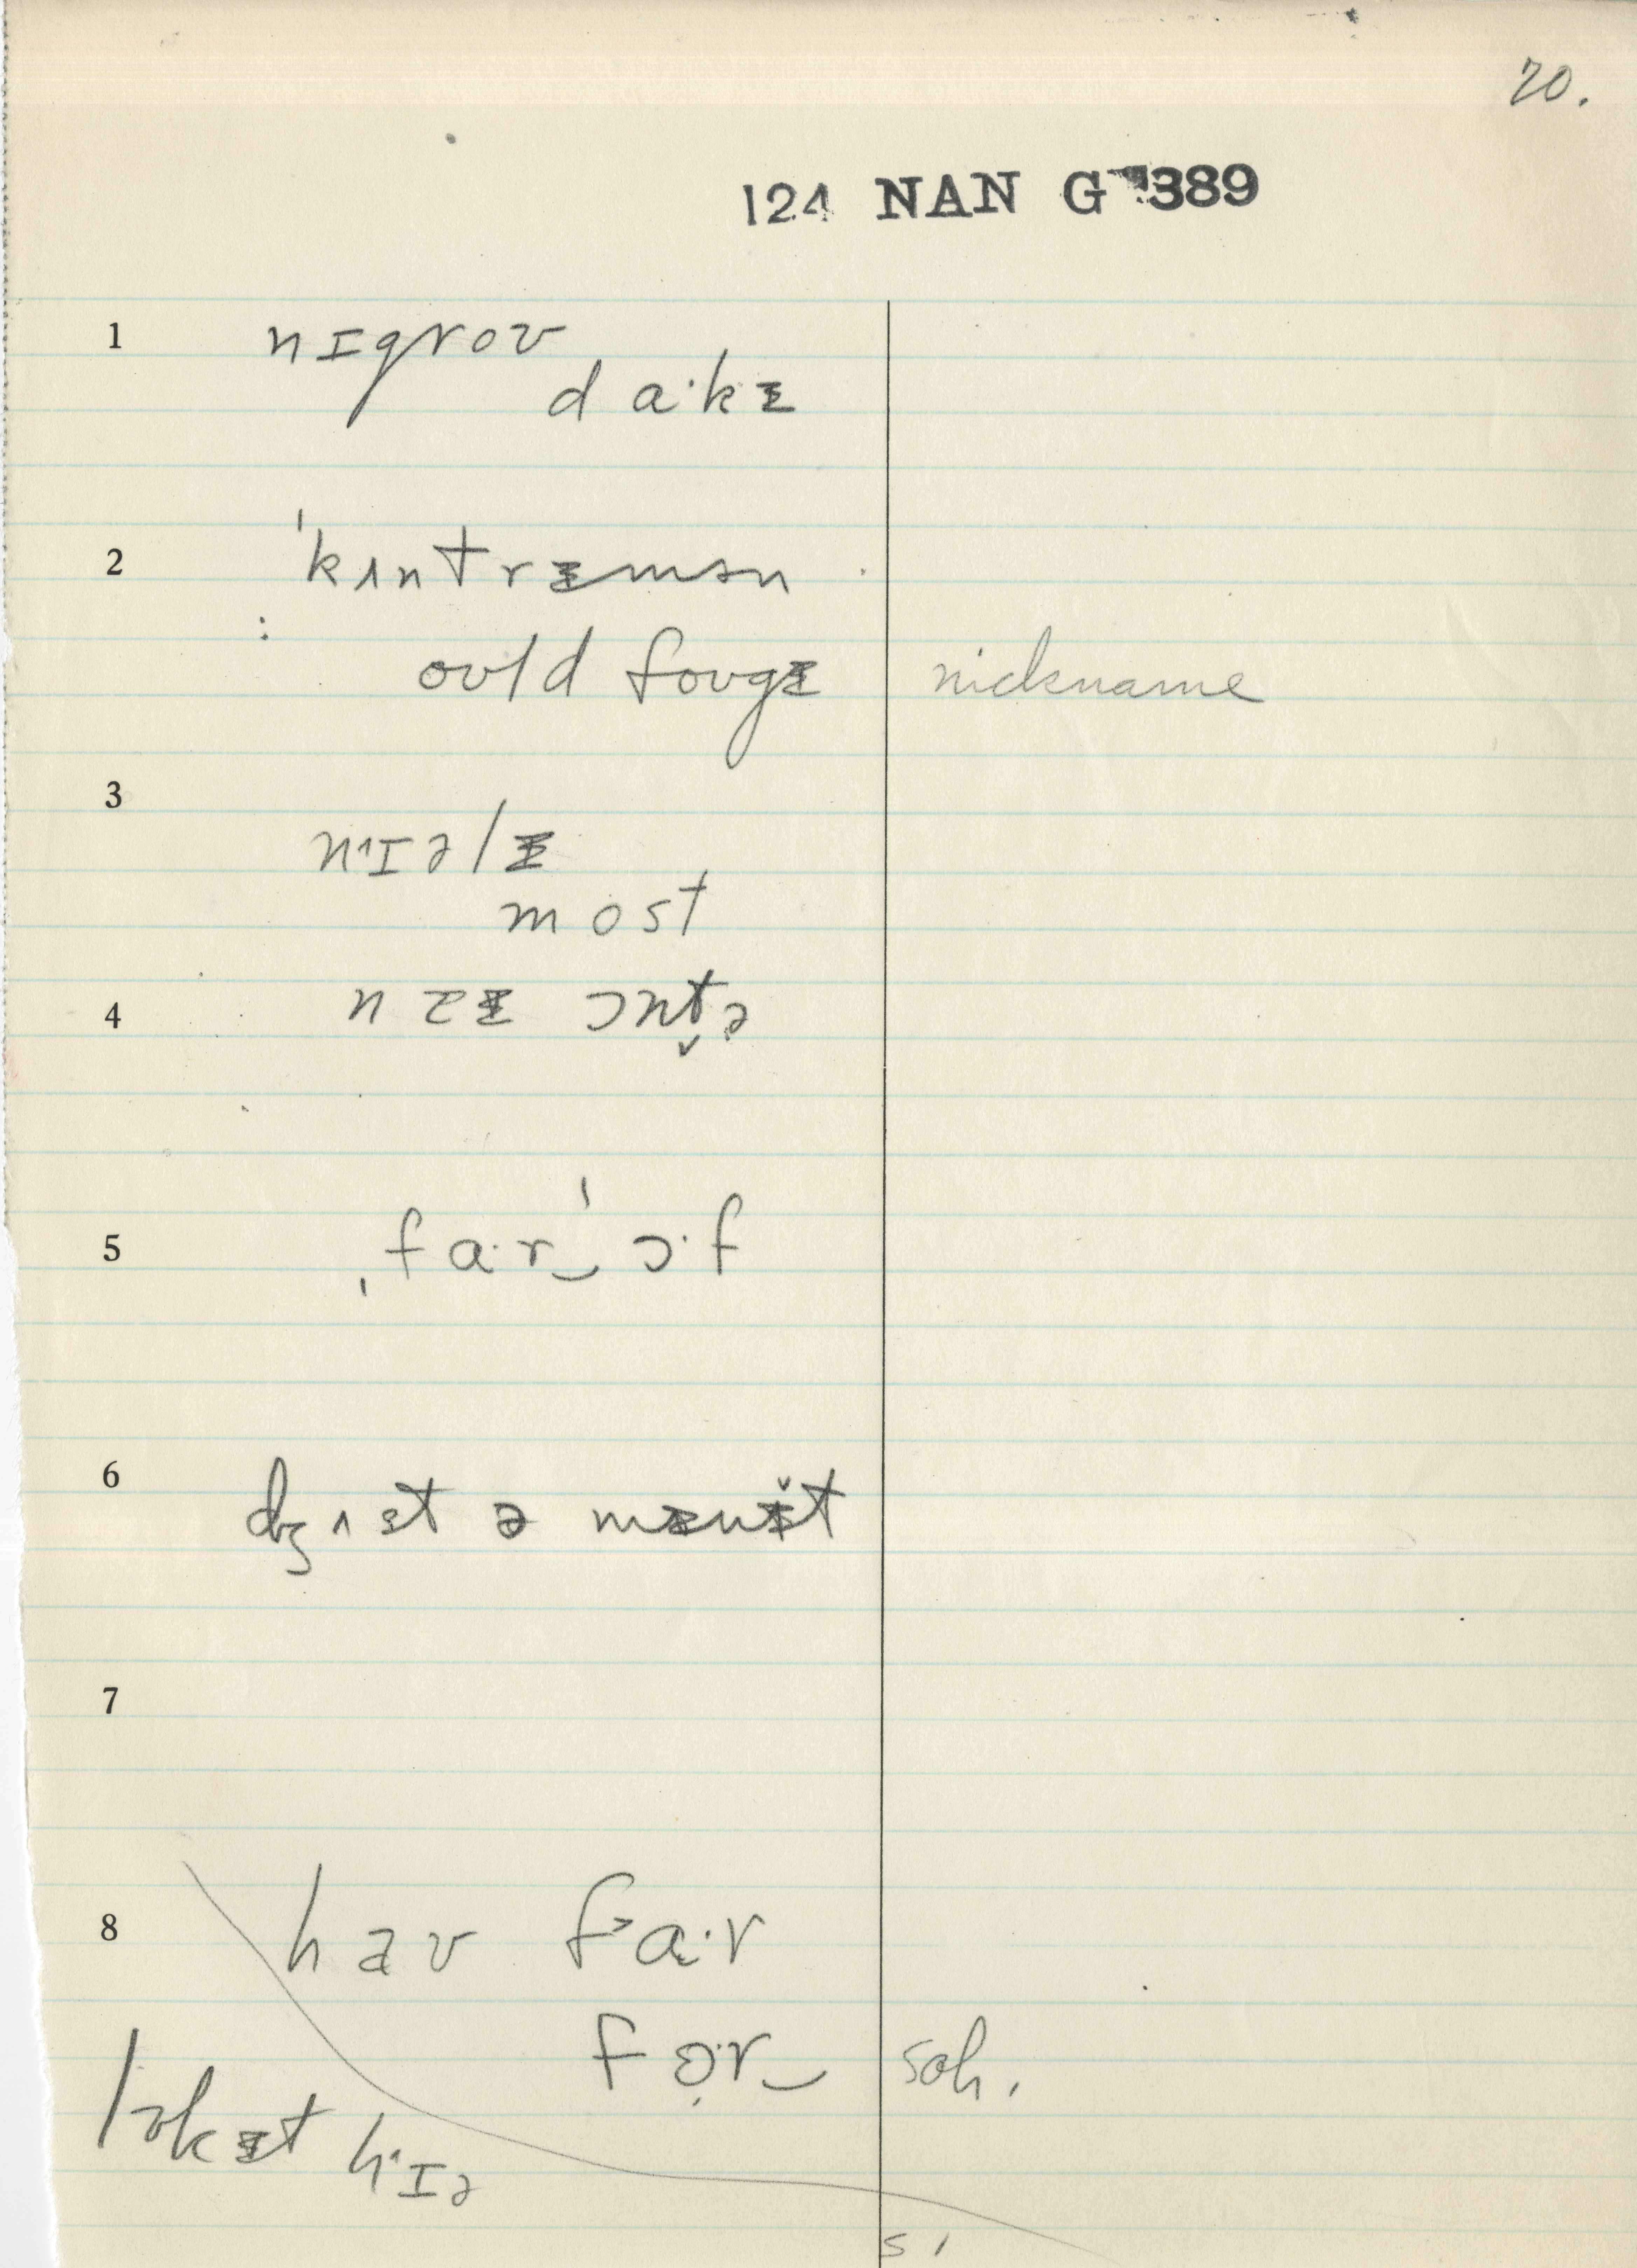 70.
124 NAN G 389
1 nɪgroʊ
daˑkᵻ
2 ˈkʌntrᵻmən
: oʊld foʊgᵻ nickname
3 nɪəlᵻ
most
4 nɛᵻ ɔnt̬ə
5 ˌfaˑr‿ˈɔˑf
6 dʒʌst ə mᵻnᵻ̆t
7
8 haʊ faˑr
foˑr‿ soh.
lʊkᵻt hɪə